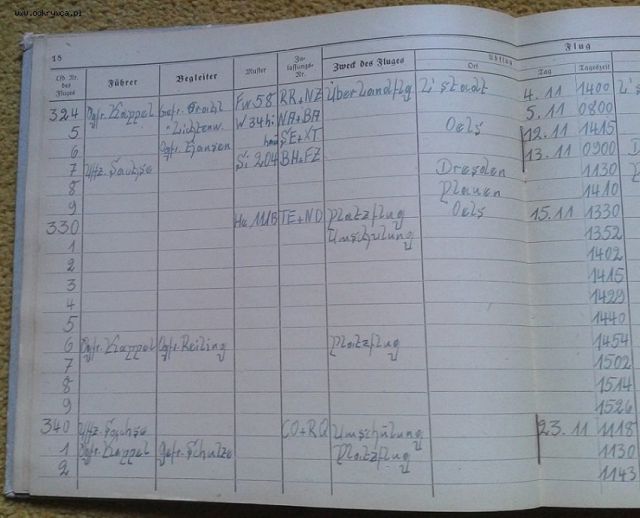 www.odkrywca.pl
18
Flug
Abflug
Lfd. Nr. des Fluges Führer Begleiter Muster Zulassungs-Nr. Zweck des Fluges Ort Tag Tageszeit
324 Ogfr. Kappel Gefr. Fw 58 RR+NZ Überlandflg L'stadt 4.11 1400
5 W 34 hi NA+BA 5.11 0800
6 Ogfr. Hansen hau SE+XT Oels 12.11 1415
7 Uffz. Si 204 BH+FZ 13.11 0900
8 Dresden 1130
9 Plauen 1410
330 He 111B TE+ND Platzflug Oels 15.11 1330
1 Umschulung 1352
2 1402
3 1415
4 1429
5 1440
6 Ogfr. Kappel Ogfr. Reiling Platzflug 1454
7 1502
8 1514
9 1526
340 Uffz. CO+RQ Umschulung 23.11 1118
1 Ogfr. Kappel Gefr. Schulze Platzflug 1130
2 1143